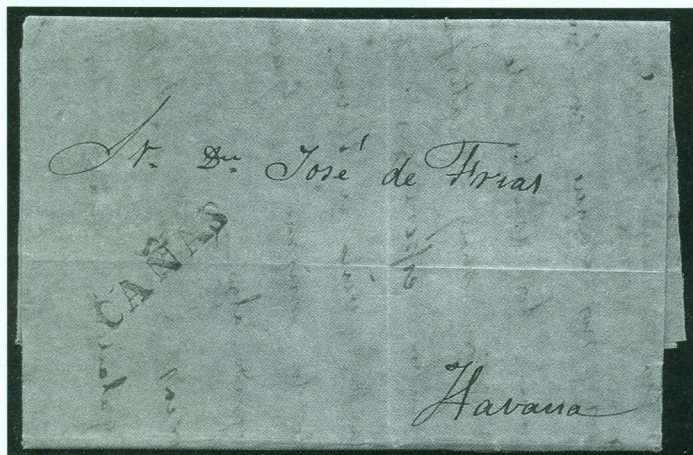 Sr. Dn José de Frias
CAÑAS
Havana